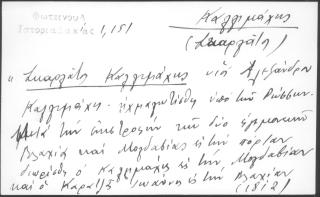 Φωτεινού
Ιστορία Δακίας 1,151
Καλλιμάχης
(Σκαρλάτος)
" Σκαρλάτος Καλλιμάχης υιός Αλεξάνδρου
Καλλιμάχη. ηχμαλωτίσθη υπό των Ρώσσων.
Μετά την επιστροφήν των δύο ηγεμονιών
Βλαχίας και Μολδαβίας εις την πόρταν
διωρίσθη ο Καλλιμάχης εις την Μολδαβίαν
και ο Καρατζάς Ιωάννης εις την Βλαχίαν
(1812)